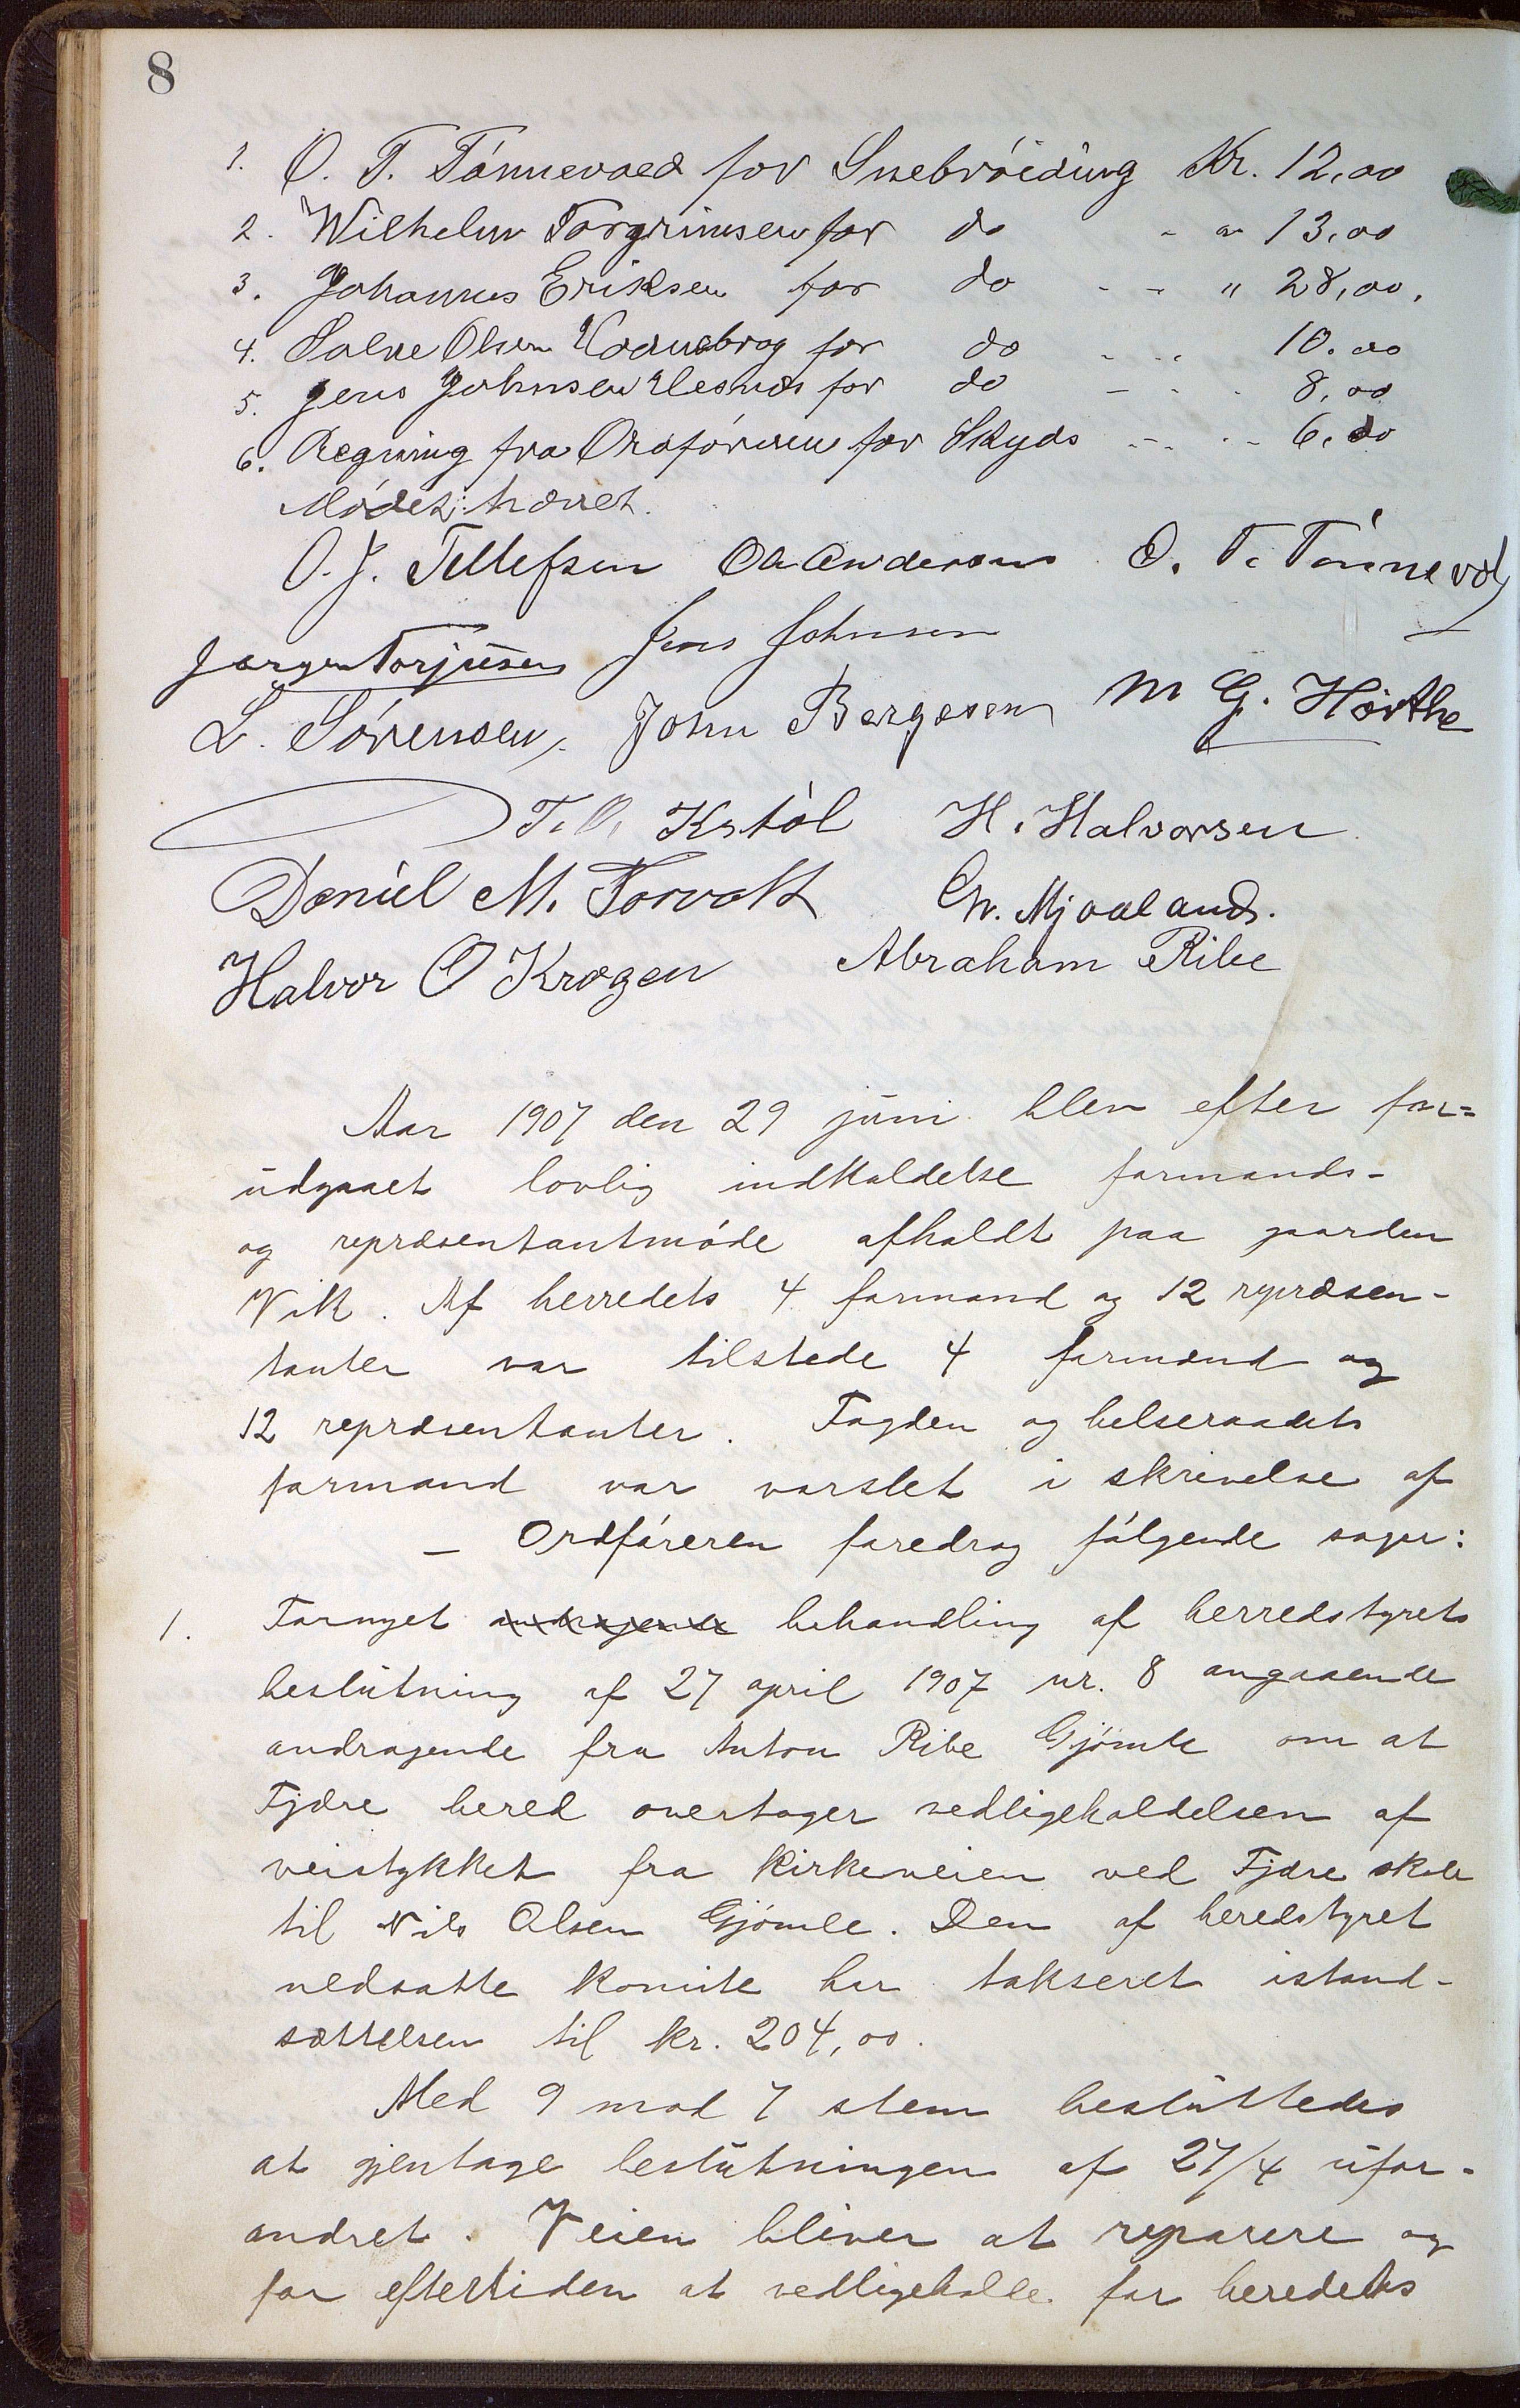 8
1. O. T. Tönnevold for Snebröiding Kr. 12,00
2. Wilhelm Torgrimsen for do - " 13,00
3. Johannes Eriksen for do - - " 28,00.
4. Salve Olsen for do - - 10.00
5. Jens Johnsen Vesnes for do - - - 8,00
6. Regning fra Ordföreren for Skyds - - - - 6,00
Mödet hævet.
O. J. Tellefsen Ole Andersen O. T. Tönnevold
Jørgen Torjusen Jens Johnsen
L. Sörensen, John Bergesen M G. Hörthe
T. O. Kstöl H. Halvorsen
Daniel M. Torvolt Chr. Mjaaland.
Halvor O Krogen Abraham Ribe
Aar 1907 den 29 juni blev efter for=
udgaaet lovlig indkaldelse formands-
og repræsentantmöde afholdt paa gaarden
Vik. Af herredets 4 formænd og 12 repræsen-
tanter var tilstede 4 formænd og
12 repræsentanter. Fogden og helseraadets
formand var varslet i skrivelse af
– Ordföreren foredrog fölgende sager:
1. Fornyet andragende behandling af herredstyrets
beslutning af 27 april 1907 nr. 8 angaaende
andragende fra Anton Ribe Gjömle om at
Fjære hered overtager vedligeholdelsen af
veistykket fra kirkeveien ved Fjære skole
til Nils Olsen Gjömle. Den af heredstyret
nedsatte komite har takseret istand-
sættelsen til kr. 204,00.
Med 9 mod 7 stem besluttedes
at gjentage beslutningen af 27/4 ufor-
andret. Veien bliver at reparere og
for eftertiden at vedligeholde for heredets